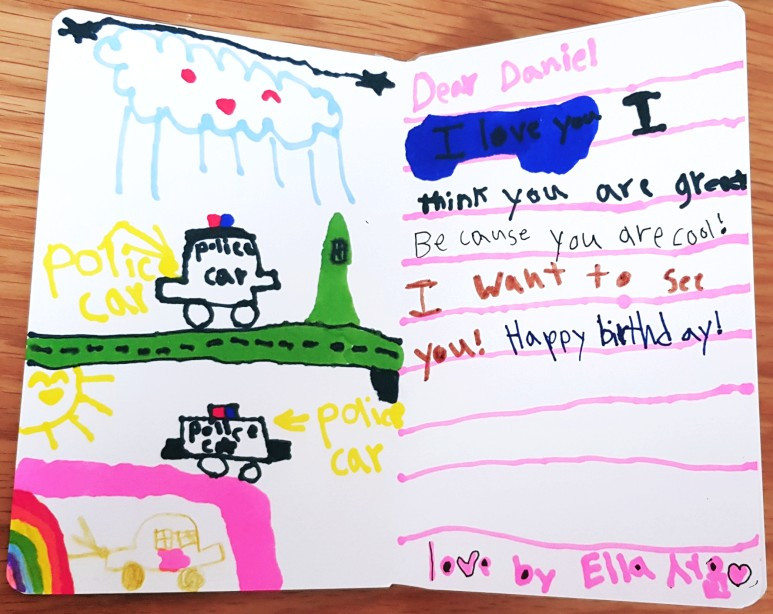 police
car
police
car
police
car
police
car
Dear Daniel
I love you I
think you are great
Because you are cool!
I want to see
you! Happy birthday!
love by Ella